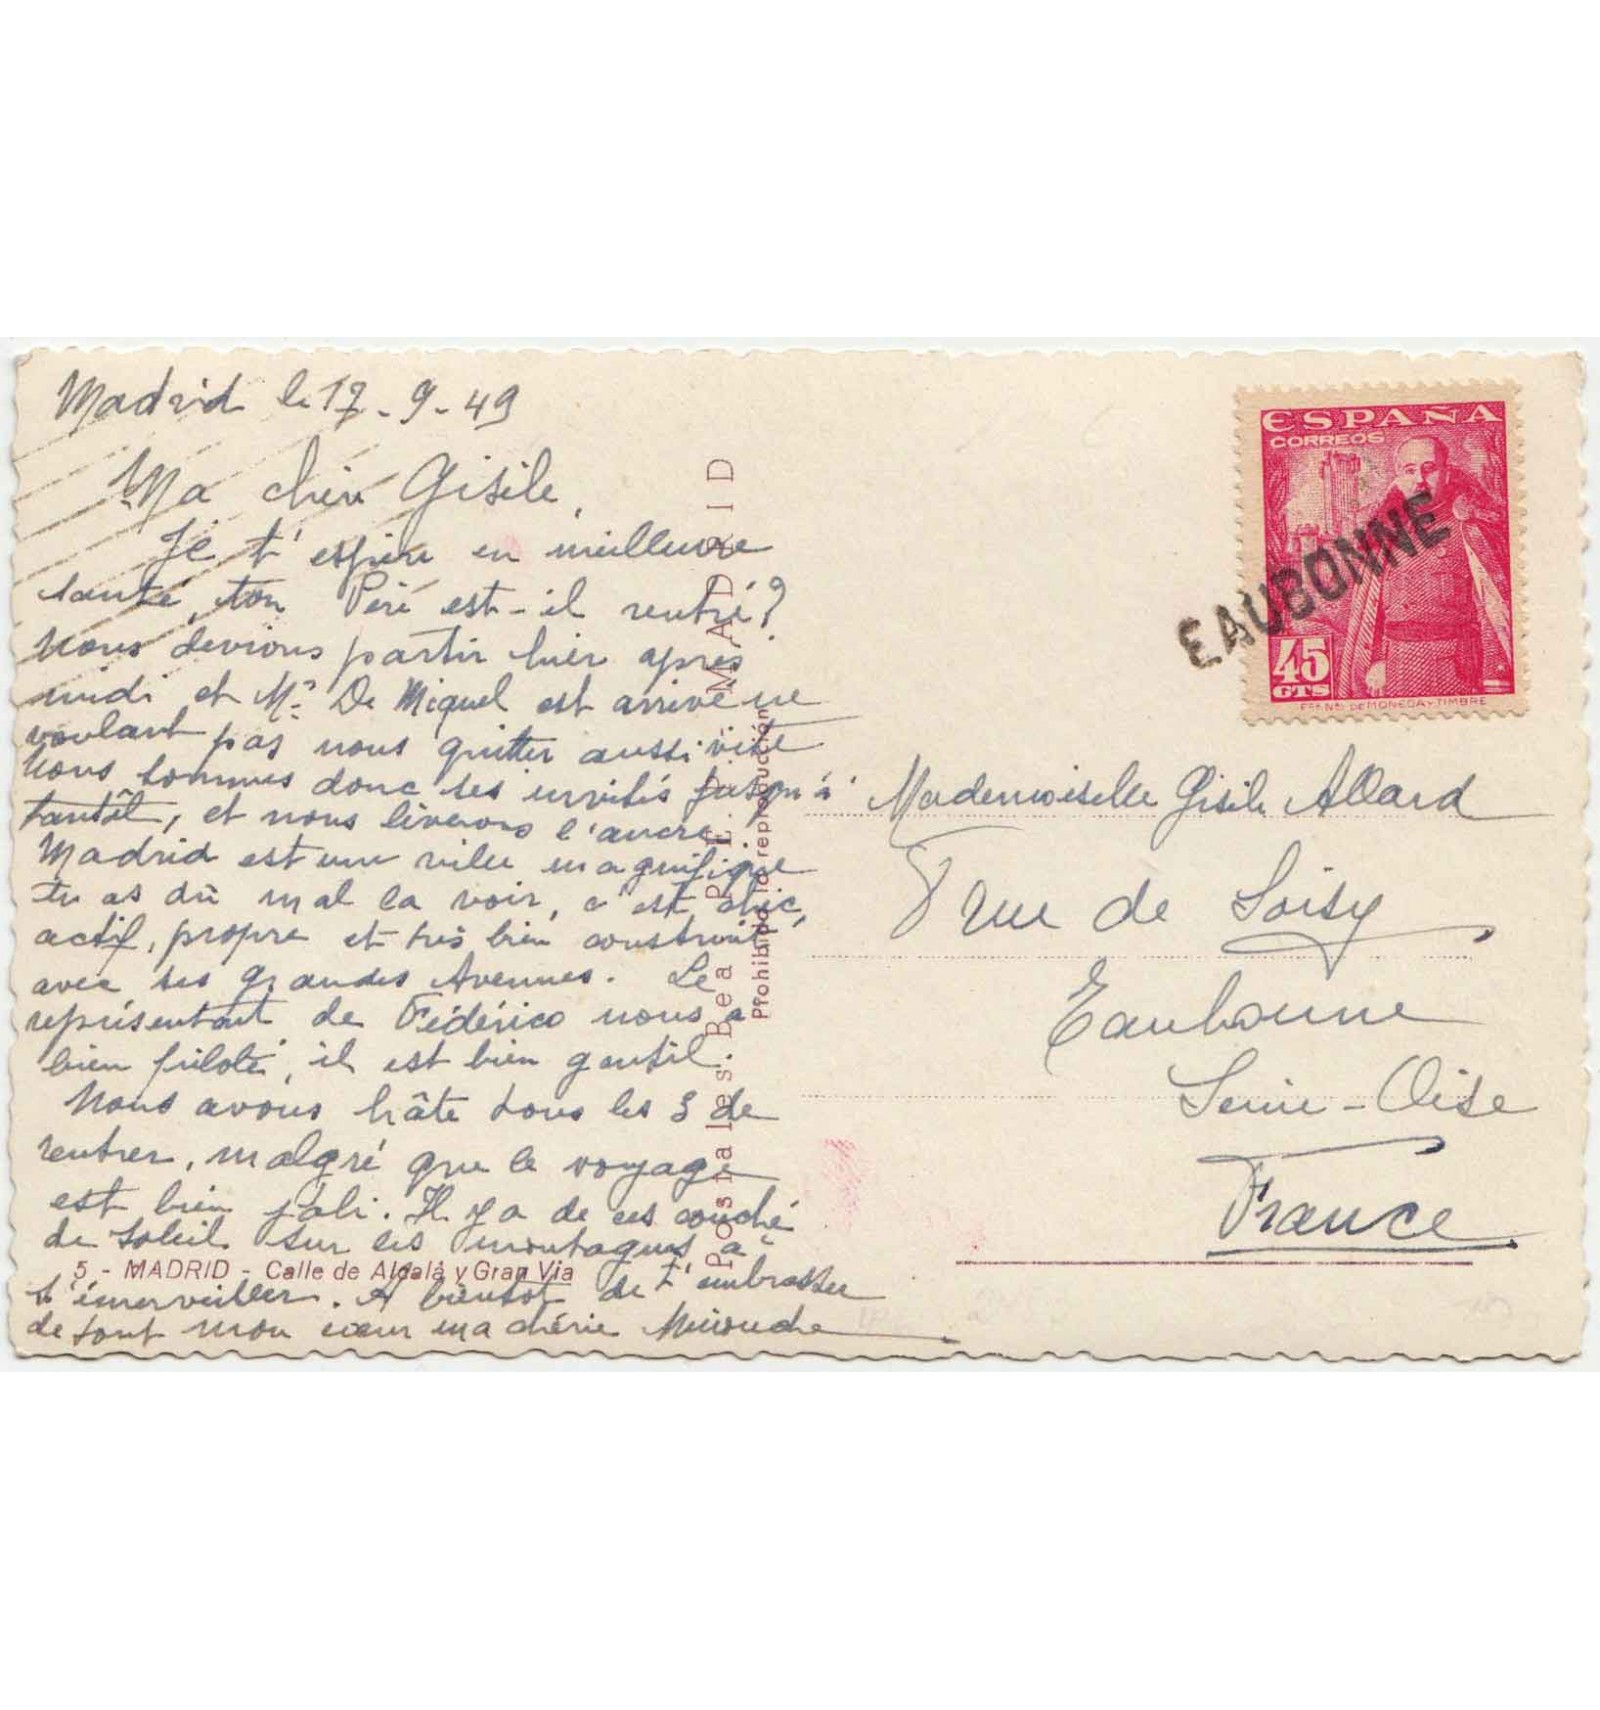 Madrid le 17-9-49
Ma chère Gisèle,
Je t'espère en meilleure
santé, ton Père est-il rentré?
Nous devions partir hier après
midi et Mr De Miguel est arrivé ne
voulant pas nous quitter aussi vite
Nous sommes donc ses invités jusqu'à
tantôt, et nous lèverons l'ancre.
Madrid est une ville magnifique
tu as dû mal la voir, c'est chic,
actif, propre et très bien construit,
avec ses grandes Avennes. Le
représentant de Fédérico nous a
bien piloté, il est bien gentil.
Nous avons hâte tous les 3 de
rentrer, malgré que le voyage
est bien joli. Il y a de ces couché
de soleil sur les montagnes à
t'émerveiller. A bientôt de t'embrasser
de tout mon cœur ma chérie Minouche
5 - MADRID - Calle de Alcalá y Gran Via
Prohibido la reproducción
ESPAÑA
CORREOS
45
CTS
F.B.NAL DE MONEDA Y TIMBRE
EAUBONNE
Mademoiselle Gisèle Allard
rue de Soisy
Eaubonne
Seine-Oise
France